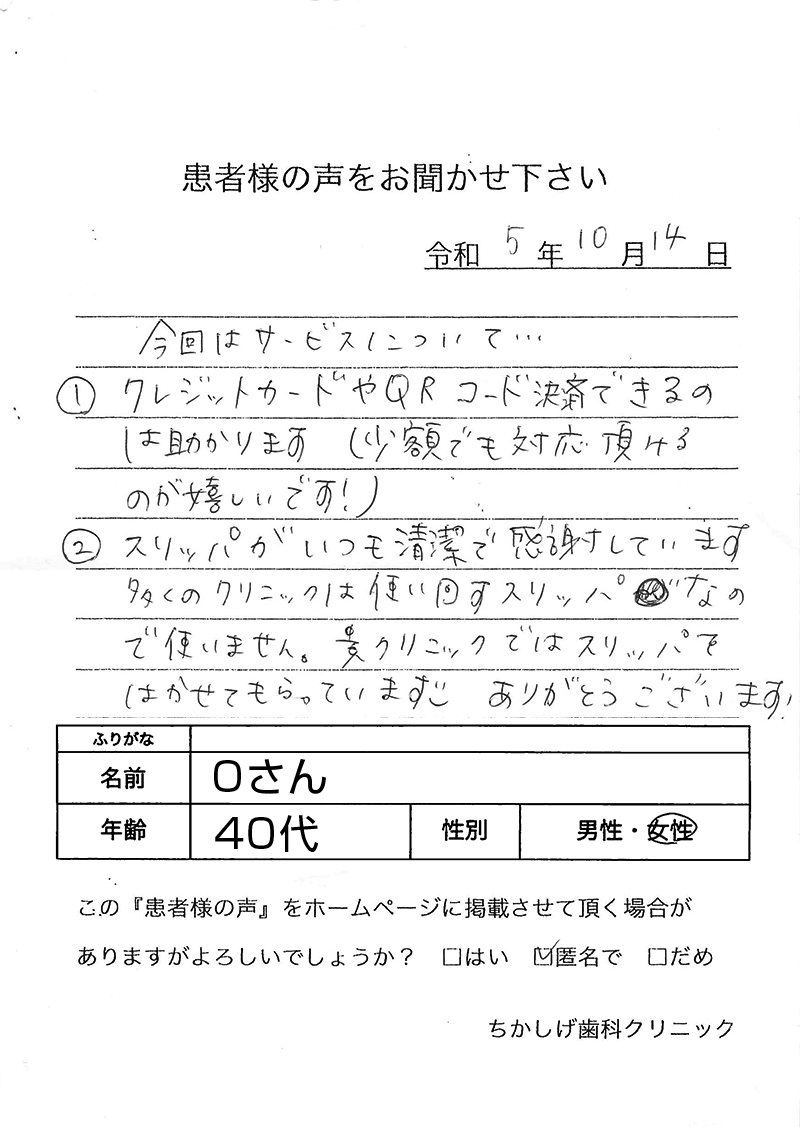 患者様の声をお聞かせ下さい
令和 5 年 10 月 14 日
今回はサービスについて…
① クレジットカードやQRコード決済できるの
は助かります (少額でも対応頂ける
のが嬉しいです!)
② スリッパがいつも清潔で感謝しています
多くのクリニックは使い回すスリッパなの
で使いません。貴クリニックではスリッパを
はかせてもらっています ありがとうございます!
ふりがな
名前 Oさん
年齢 40代 性別 男性・女性
この『患者様の声』をホームページに掲載させて頂く場合が
ありますがよろしいでしょうか? □はい ☑匿名で □だめ
ちかしげ歯科クリニック